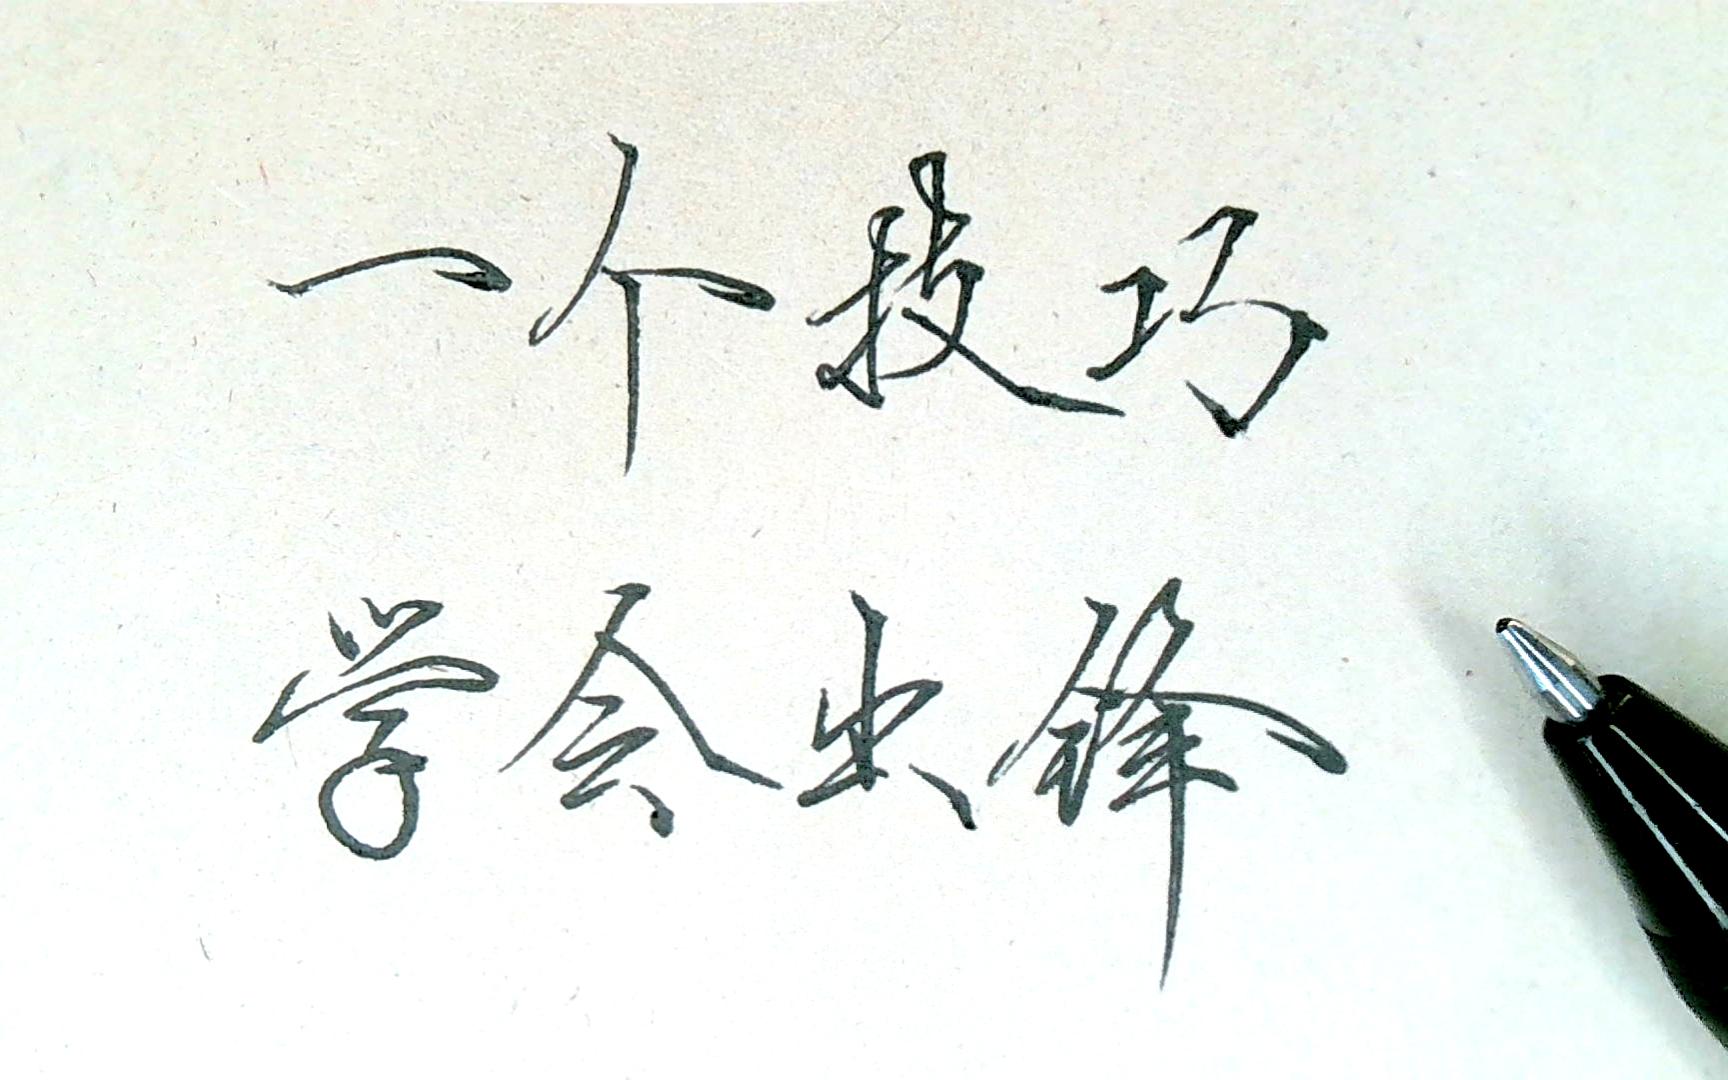 一个技巧
学会出锋